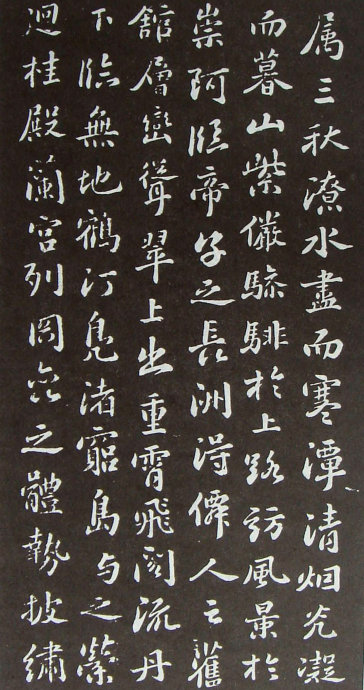 属三秋潦水盡而寒潭清烟光凝
而暮山紫儼驂騑於上路訪風景於
崇阿臨帝子之長洲得僊人之舊
舘層巒聳翠上出重霄飛閣流丹
下臨無地鶴汀鳧渚窮島与之縈
迴桂殿蘭宮列岡巒之軆勢披繡